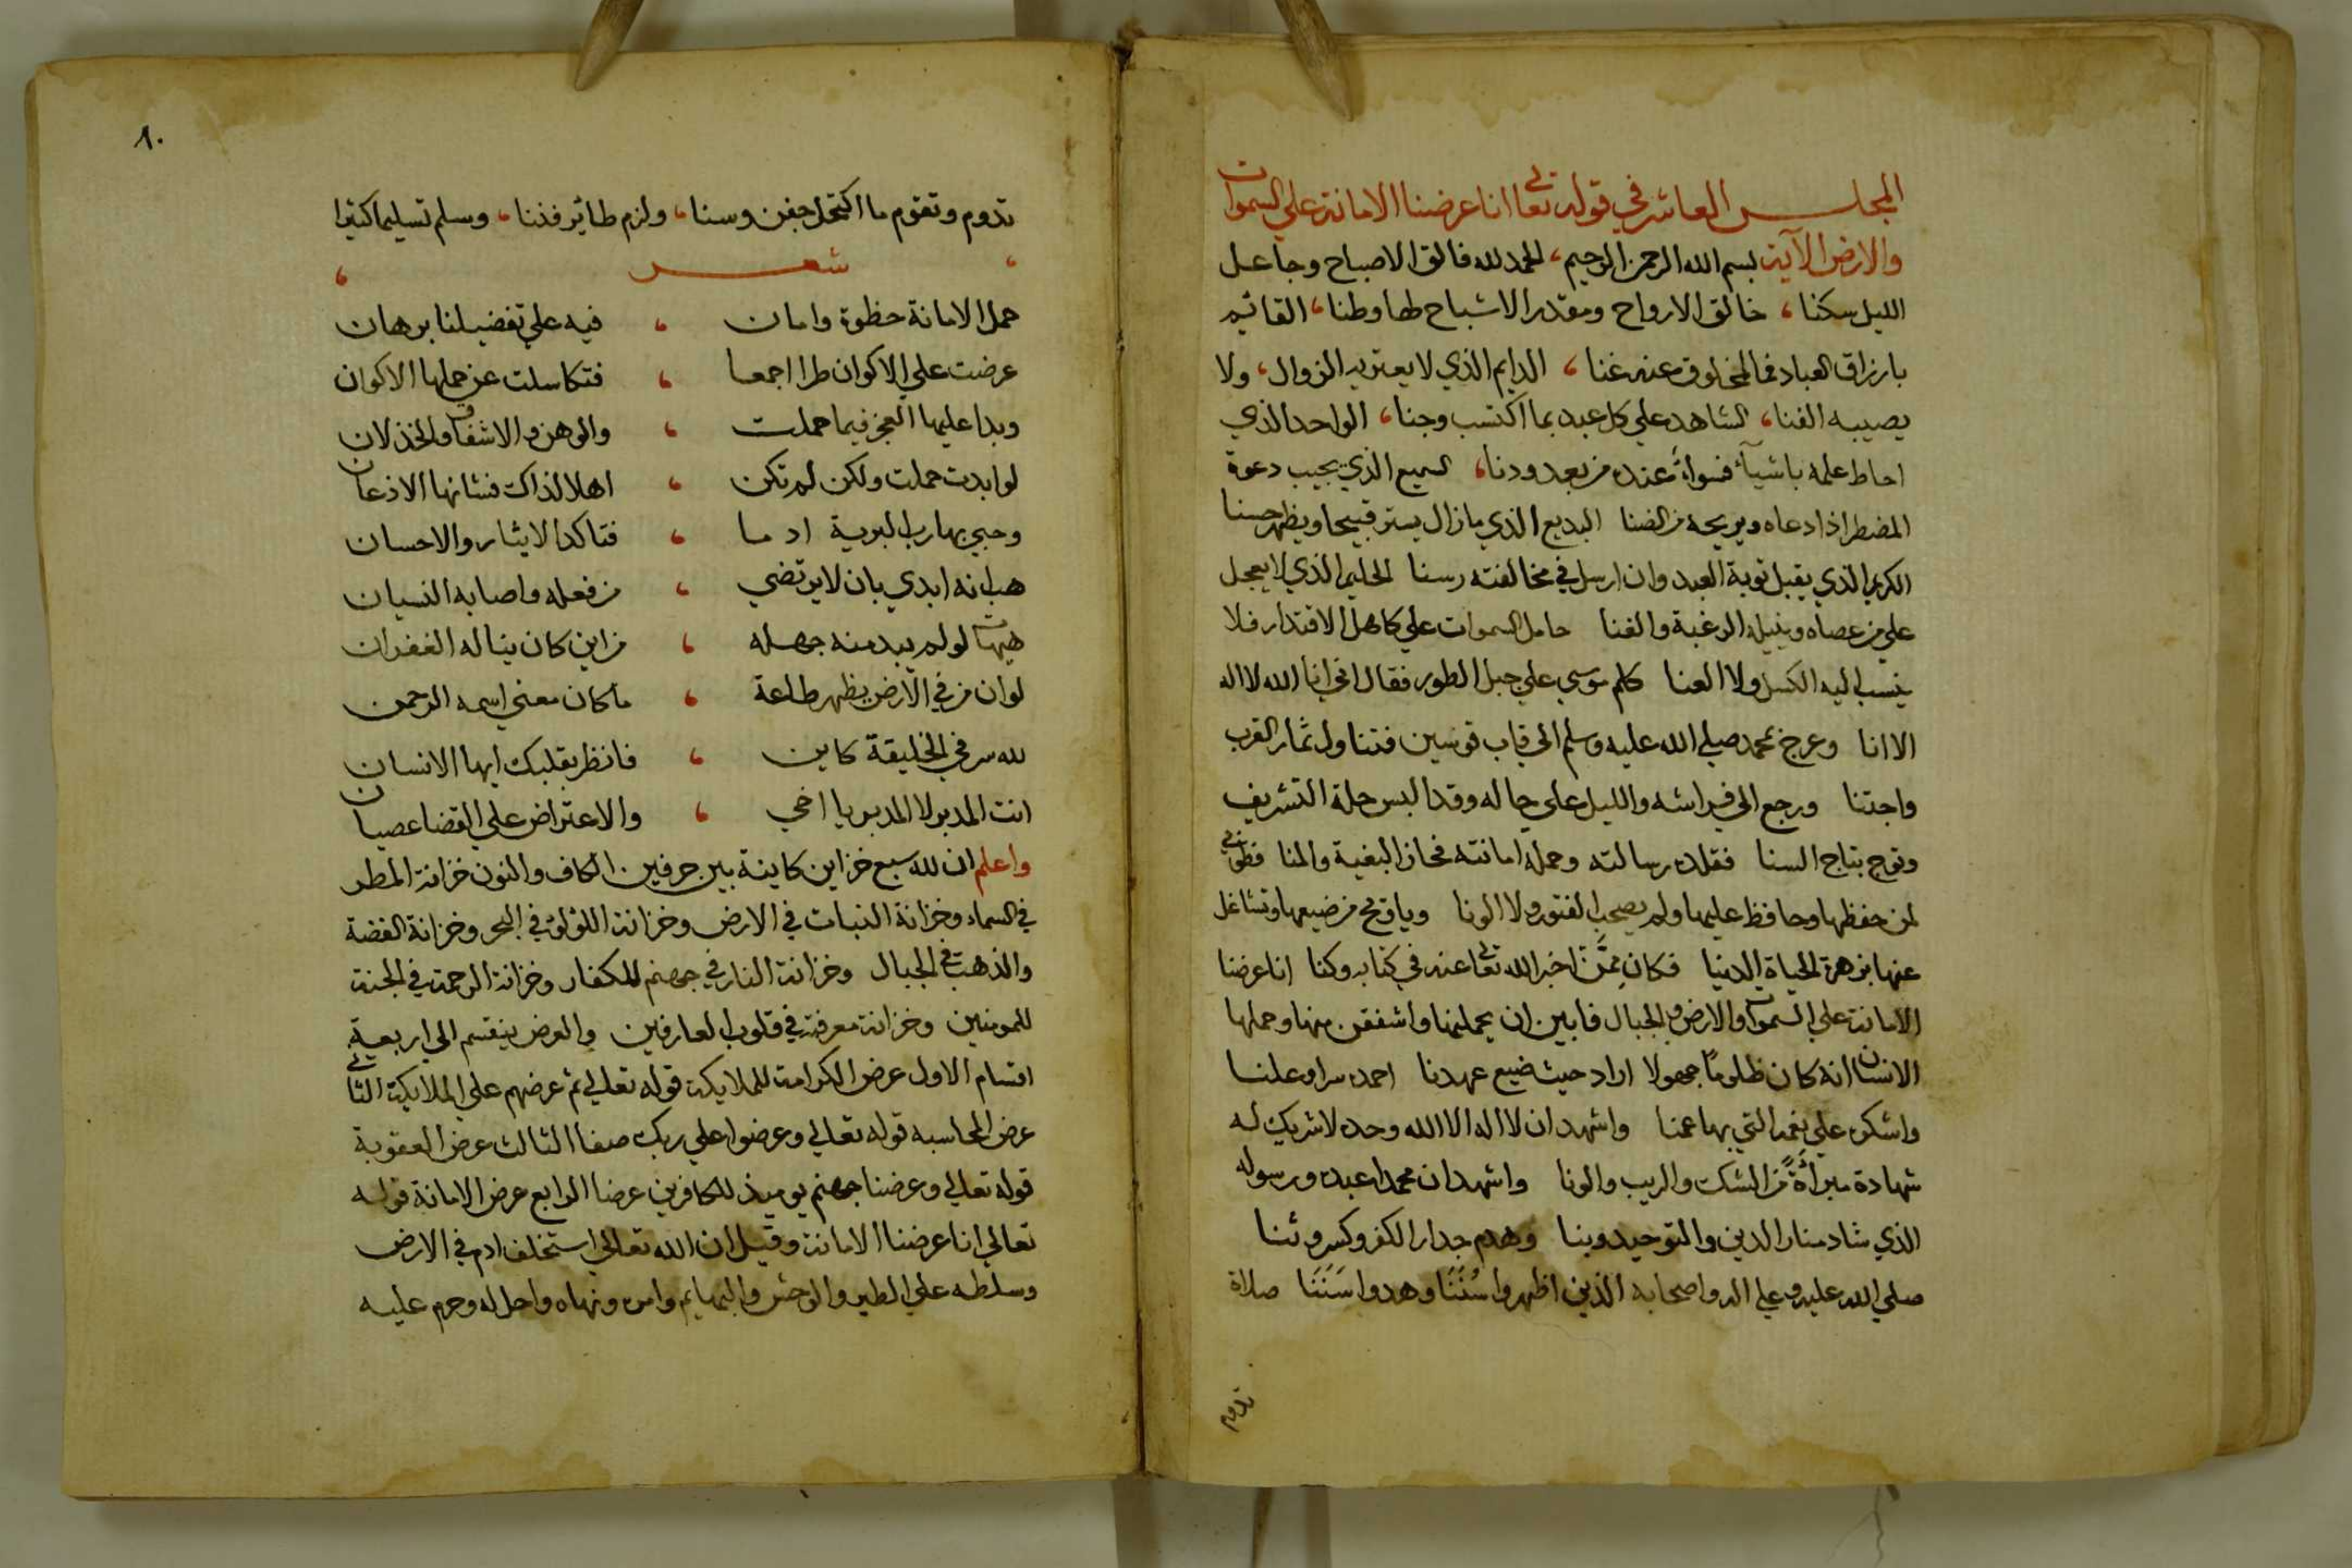 المجلس العاشر في قوله تعالى انا عرضنا الامانة علي السموات
والارض الآية بسم الله الرحمن الرحيم، الحمد لله فالق الاصباح وجاعل
الليل سكنا، خالق الارواح ومقدر الاشباح لها وطنا، القائم
بارزاق العباد فما لمخلوق عنه غنا، الدايم الذي لا يعتريه الزوال، ولا
يصيبه الفنا، الشاهد علي كل عبد بما اكتسب وجنا، الواحد الذي
احاط علمه باشيآئه فسواءٌ عنده من بعد ودنا، السميع الذي يجيب دعوة
المضطر اذا دعاه ويريحه من الضنا البديع الذي ما زال يستر قبيحا ويظهر حسنا
الكريم الذي يقبل توبة العبد وان ارسل في مخالفته رسنا الحليم الذي لا يعجل
علي من عصاه وينيله الرغبة والغنا حامل السموات علي كاهل الاقتدار فلا
ينسب اليه الكسل ولا العنا كلم موسي علي جبل الطور فقال انني انا الله لا اله
الا انا وعرج بمحمد صلي الله عليه وسلم الي قاب قوسين فتناول ثمار القرب
واجتنا ورجع الي فراشه والليل علي حاله وقد البس حلة التشريف
وتوج بتاج السنا فقلده رسالته وحمله امانته فحاز البغية والمنا فطوبي
لمن حفظها وحافظ عليها ولم يصحب الفتور ولا الونا وياويح من ضيعها وتشاغل
عنها بزهرة الحياة الدنيا فكان ممَّن اخبر الله تعالى عنه في كتابه وكنا انا عرضنا
الامانة علي السموات والارض والجبال فابين ان يحملنها واشفقن منها وحملها
الانسان انه كان ظلوماً جهولا اراد حيث ضيع عهدنا احمده سرا وعلنا
واشكره علي نعمه التي بها عمنا واشهد ان لا اله الا الله وحده لا شريك له
شهادة مبرأةً من الشك والريب والونا واشهد ان محمدا عبده ورسوله
الذي شاد منار الدين والتوحيد وبنا وهدم جدار الكفر وكسر وثنا
صلي الله عليه وعلي اله واصحابه الذين اظهروا سُنَنَا وهدوا سَنَنَا صلاة
تدوم
٨٠
تدوم وتقوم ما اكتحل جفن وسنا، ولزم طائر فننا، وسلم تسليما كثيرا
شعر
حمل الامانة حظوة وامان ، فيه علي تفضيلنا برهان
عرضت علي الاكوان طرا اجمعا ، فتكاسلت عن حملها الاكوان
وبدا عليها العجز فيما حملت ، والوهن والاشفاق والخذلان
لو ابدت حملت ولكن لم تكن ، اهلا لذاك فشانها الاذعان
وحبي بها رب البرية ادما ، فتاكد الايثار والاحسان
هب انه ابدي بان لا يرتضي ، من فعله واصابه النسيان
هيهات لو لم يبد منه جهله ، من اين كان يناله الغفران
لو ان من في الارض يظهر طاعة ، ما كان معني اسمه الرحمن
لله سر في الخليقة كاين ، فانظر بقلبك ايها الانسان
انت المدبر لا المدبر يا اخي ، والاعتراض علي القضا عصيان
واعلم ان لله سبع خزاين كاينة بين حرفين الكاف والنون خزانة المطر
في السماء وخزانة النبات في الارض وخزانة اللؤلؤ في البحر وخزانة الفضة
والذهب في الجبال وخزانة النار في جهنم للكفار وخزانة الرحمة في الجنة
للمومنين وخزانة معرفته في قلوب العارفين والعرض ينقسم الي اربعة
اقسام الاول عرض الكرامة للملايكة قوله تعالي ثم عرضهم علي الملايكة الثاني
عرض المحاسبه قوله تعالي وعرضوا علي ربك صفا الثالث عرض العقوبة
قوله تعالي وعرضنا جهنم يوميذ للكافرين عرضا الرابع عرض الامانة قوله
تعالي انا عرضنا الامانة وقيل ان الله تعالي استخلف ادم في الارض
وسلطه علي الطير والوحش والبهايم وامره ونهاه واحل له وحرم عليه